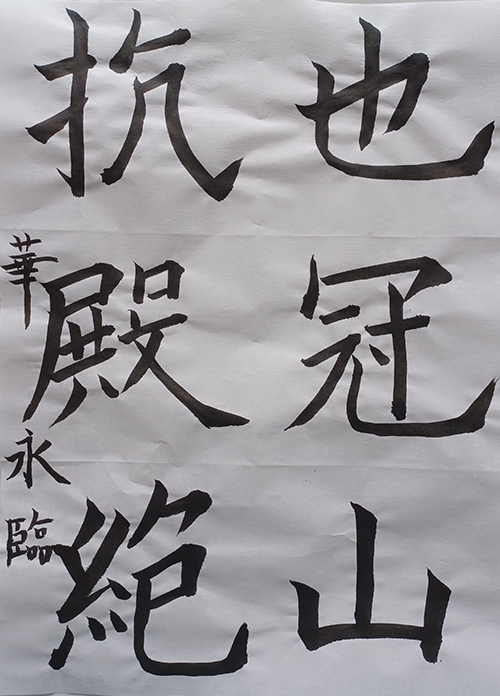 也冠山
抗殿絕
華永臨